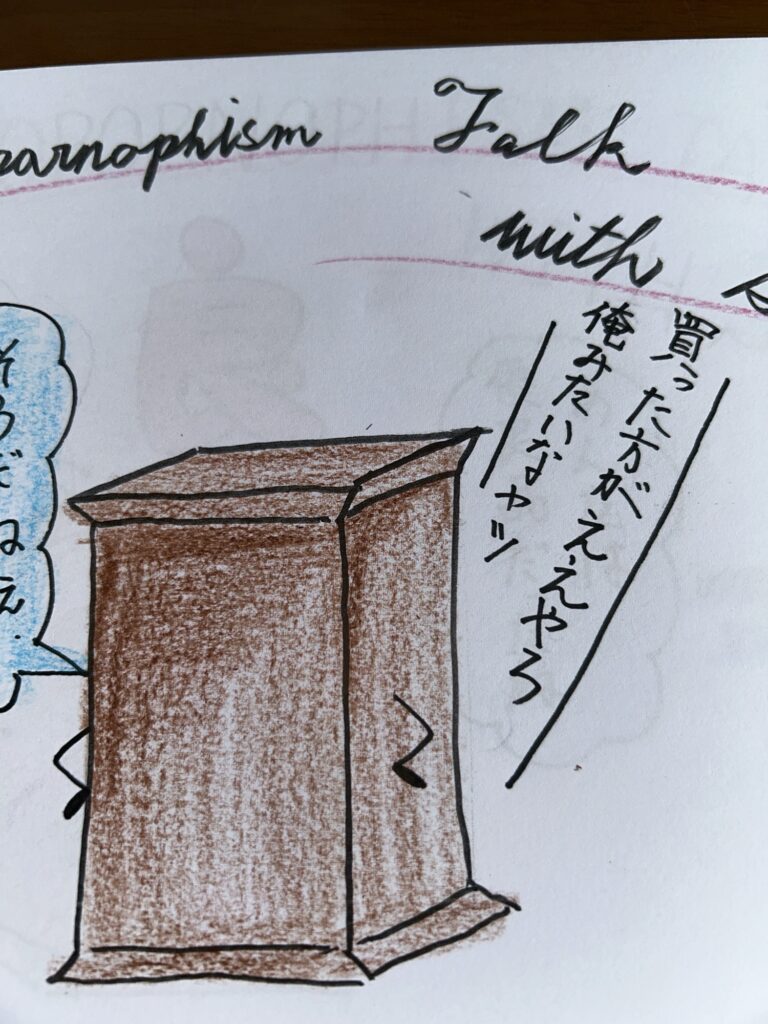 arnophism Talk
with
買った方がええやろ
俺みたいなヤツ
そうだねえ.